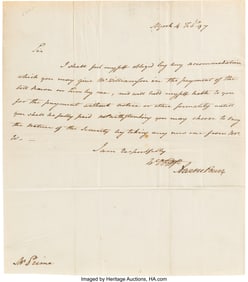 Sir
I shall feel myself obliged by any accommodation
which you may give Mr Williamson in the payment of the
bill drawn on him by me, and will hold myself liable to you
for the payment without notice or other formality until
you shall be fully paid notwithstanding you may choose to vary
the nature of the security by taking any new one from him
I am respectfully
Aaron Burr
Mr Prime
Imaged by Heritage Auctions, HA.com